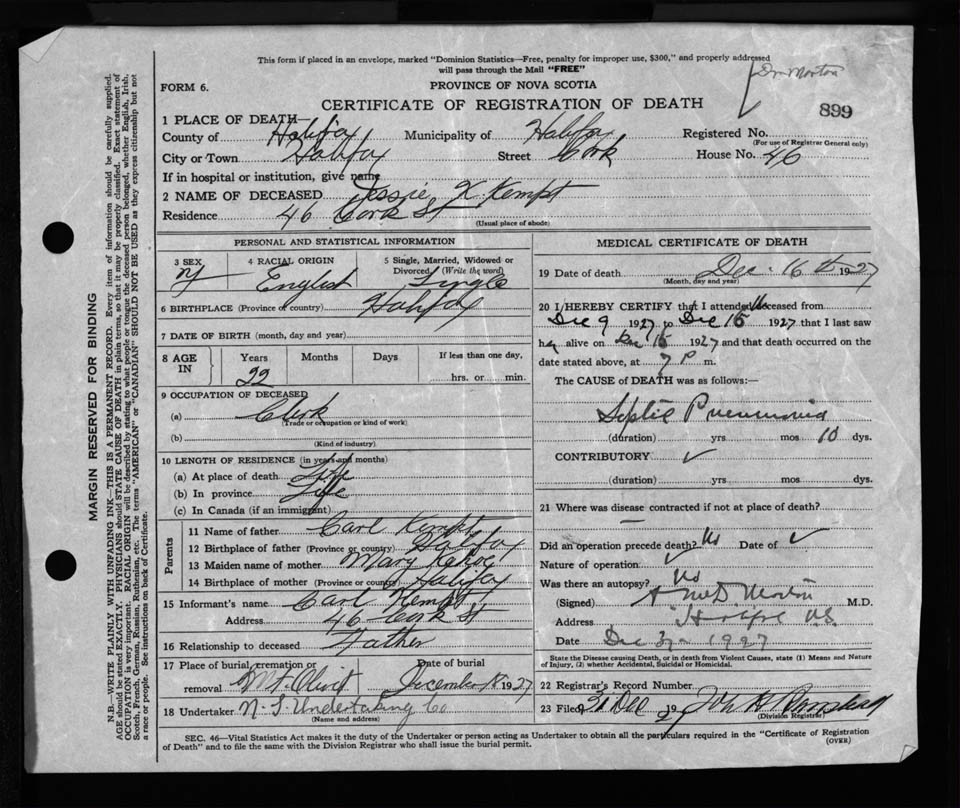 This form if placed in an envelope, marked "Dominion Statistics—Free, penalty for improper use, $300," and properly addressed
will pass through the Mail "FREE"
Dr Morton
FORM 6.
PROVINCE OF NOVA SCOTIA
CERTIFICATE OF REGISTRATION OF DEATH
899
1 PLACE OF DEATH—
County of Halifax Municipality of Halifax Registered No.
(For use of Registrar General only)
City or Town Halifax Street Cork House No. 46
If in hospital or institution, give name
2 NAME OF DECEASED Jessie K. Kempt
Residence 46 Cork St
(Usual place of abode)
PERSONAL AND STATISTICAL INFORMATION
3 SEX 4 RACIAL ORIGIN 5 Single, Married, Widowed or
Divorced (Write the word)
English Single
6 BIRTHPLACE (Province or country) Halifax
7 DATE OF BIRTH (month, day and year)
8 AGE IN Years Months Days If less than one day,
22 hrs. or min.
9 OCCUPATION OF DECEASED
(a) Clerk
(Trade or occupation or kind of work)
(b)
(Kind of industry)
10 LENGTH OF RESIDENCE (in years and months)
(a) At place of death Life
(b) In province Life
(c) In Canada (if an immigrant)
Parents
11 Name of father Carl Kempt
12 Birthplace of father (Province or country) Halifax
13 Maiden name of mother Mary
14 Birthplace of mother (Province or country) Halifax
15 Informant's name Carl Kempt
Address 46 Cork St
16 Relationship to deceased Father
17 Place of burial, cremation or Date of burial
removal Mt. Olivet December 18 1927
18 Undertaker N. S. Undertaking Co
(Name and address)
MEDICAL CERTIFICATE OF DEATH
19 Date of death Dec. 16th 1927
(Month, day and year)
20 I HEREBY CERTIFY that I attended deceased from
Dec 9 1927 to Dec 15 1927 that I last saw
her alive on Dec 15 1927 and that death occurred on the
date stated above, at 7 P m.
The CAUSE of DEATH was as follows:—
Septic Pneumonia
(duration) yrs mos 10 dys.
CONTRIBUTORY ✓
(duration) yrs. mos. dys.
21 Where was disease contracted if not at place of death?
—
Did an operation precede death? No Date of ✓
Nature of operation ✓
Was there an autopsy? No
(Signed) Morton M.D.
Address Halifax NS
Date Dec 1927
State the Disease causing Death, or in death from Violent Causes, state (1) Means and Nature
of Injury, (2) whether Accidental, Suicidal or Homicidal.
22 Registrar's Record Number
23 Filed 31 Dec 192 John H
(Division Registrar)
SEC. 46—Vital Statistics Act makes it the duty of the Undertaker or person acting as Undertaker to obtain all the particulars required in the "Certificate of Registration
of Death" and to file the same with the Division Registrar who shall issue the burial permit.
(OVER)
MARGIN RESERVED FOR BINDING
N.B.—WRITE PLAINLY WITH UNFADING INK—THIS IS A PERMANENT RECORD. Every item of information should be carefully supplied.
AGE should be stated EXACTLY. PHYSICIANS should STATE CAUSE OF DEATH in plain terms, so that it may be properly classified. Exact statement of
OCCUPATION is very important. RACIAL ORIGIN will be described by stating to what people or tongue the deceased person belonged, whether English, Irish,
Scotch, French, German, Russian, Ruthenian, etc. The terms "AMERICAN" or "CANADIAN" SHOULD NOT BE USED as they express citizenship but not
a race or people. See instructions on back of Certificate.